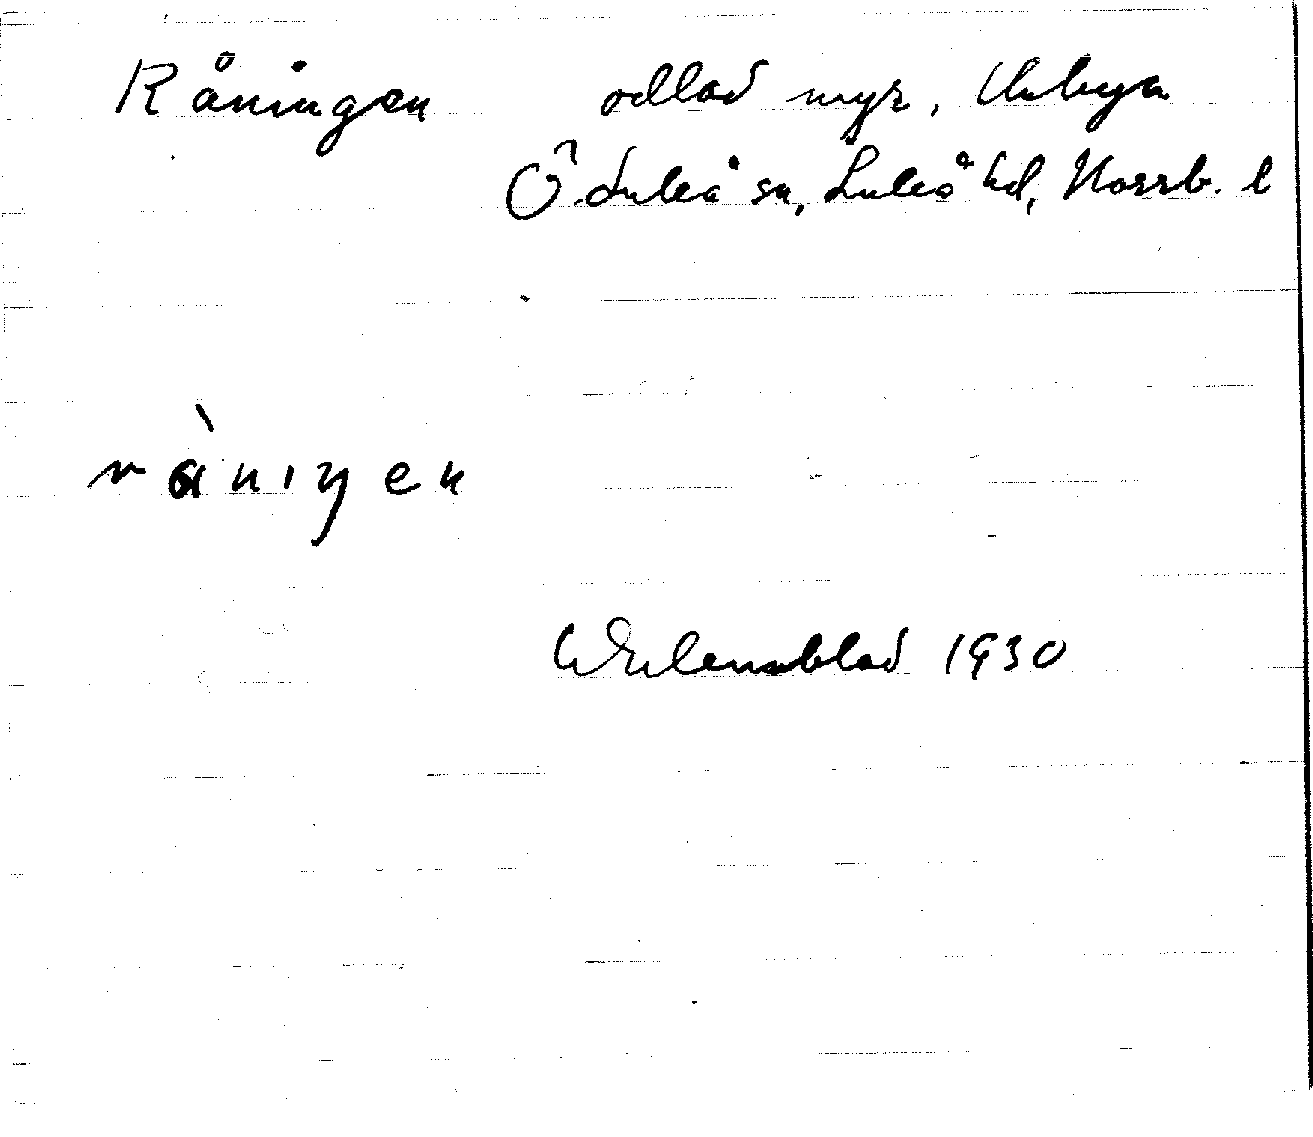 Råningen odlad myr, Unbyn
Ö. Luleå sn, Luleå hd, Norrb. l
rὰnıŋen
Wennblad 1930